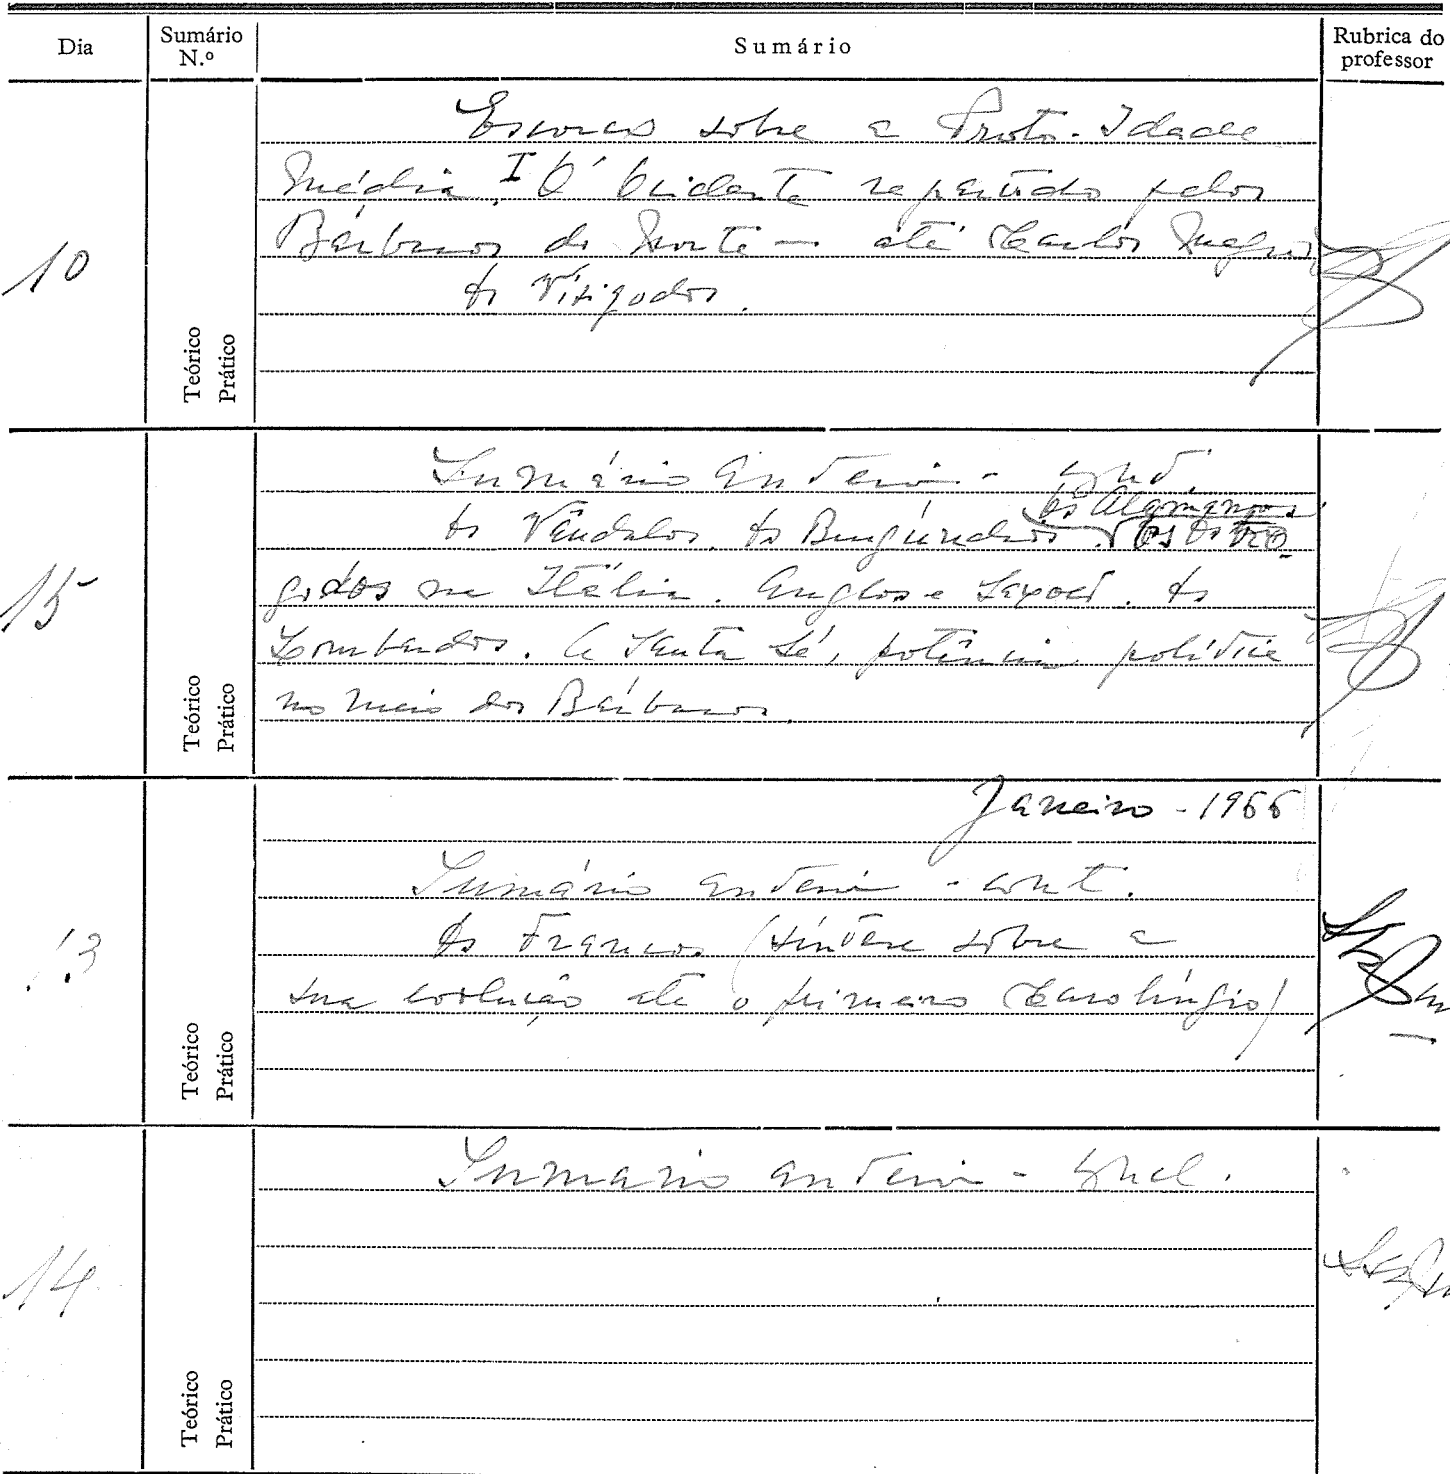 Dia
Sumário N.º
Sumário
Rubrica do professor
10
Teórico
Prático
sobre a Proto-Idade
Média. I O Ocidente repartido pelos
Bárbaros do Norte — até Carlos Magno
Os Visigodos.
15
Teórico
Prático
Sumário anterior -
Os Alamanos
Os Vândalos. Os Burgúndios. Os Ostro-
godos na Itália. Anglos e Saxões. Os
Lombardos. A Santa Sé, potência política
no meio dos Bárbaros.
Janeiro - 1966
13
Teórico
Prático
Sumário anterior - cont.
Os Francos (síntese sobre a
sua evolução até o primeiro Carolíngio)
14
Teórico
Prático
Sumário anterior - Concl.